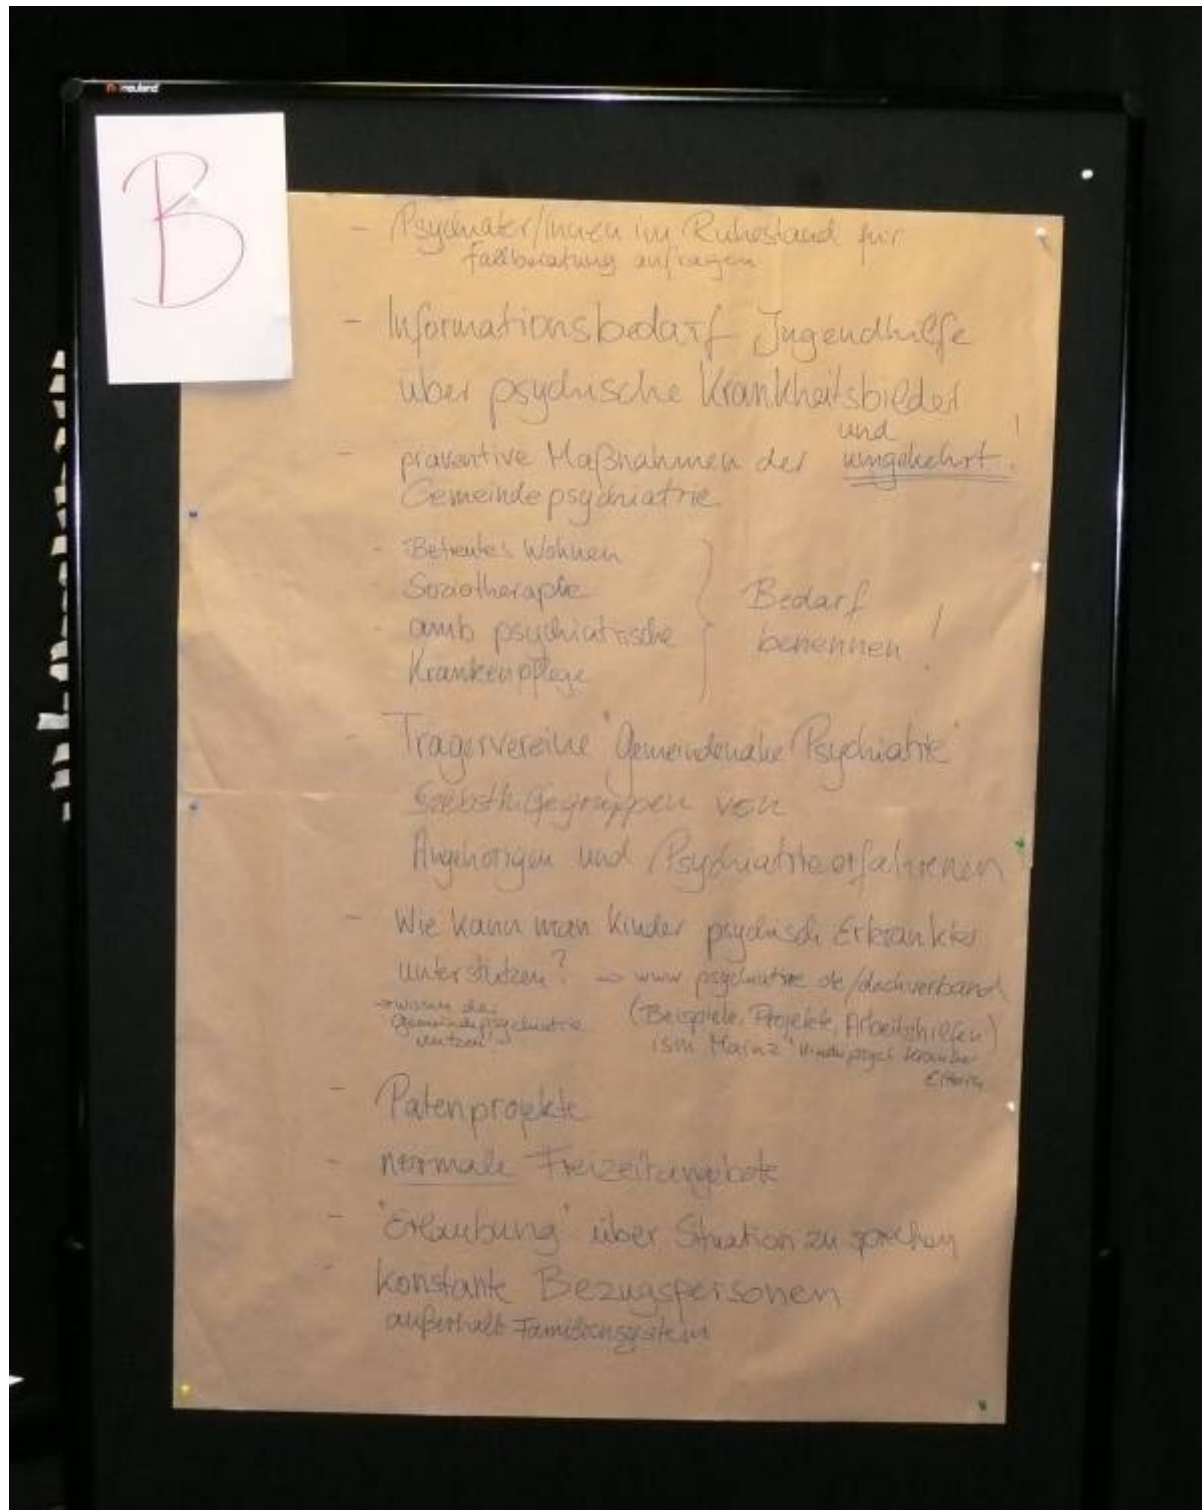 neuland
B
- Psychiater/innen im Ruhestand für
Fallberatung anfragen
- Informationsbedarf Jugendhilfe
über psychische Krankheitsbilder
und
umgekehrt!
- präventive Maßnahmen der
Gemeindepsychiatrie
- Betreutes Wohnen
Soziotherapie
- amb psychiatrische
Krankenpflege
Bedarf
benennen!
- Trägervereine "Gemeindenahe Psychiatrie"
Selbsthilfegruppen von
Angehörigen und Psychiatrieerfahrenen
- Wie kann man Kinder psychisch Erkrankter
unterstützen? → www psychiatrie de/dachverband
(Beispiele, Projekte, Arbeitshilfen)
ism Mainz "Kinder psych kranker
Eltern
→ wissen der
Gemeindepsychiatrie
nutzen!
- Patenprojekte
- normale Freizeitangebote
- "Erlaubung" über Situation zu sprechen
- konstante Bezugspersonen
außerhalb Familiensystem